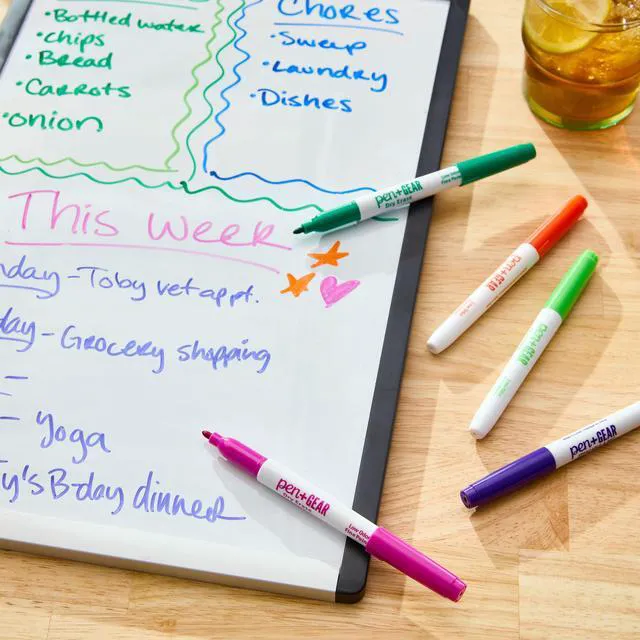 •Bottled water
•Chips
•Bread
•Carrots
•Onion
Chores
•Sweep
•Laundry
•Dishes
This Week
nday-Toby vet appt.
day-Grocery shopping
Yoga
y's B-day dinner
pen+GEAR
Dry Erase
pen+GEAR
pen+GEAR
pen+GEAR
pen+GEAR
Dry Erase
Low Odor